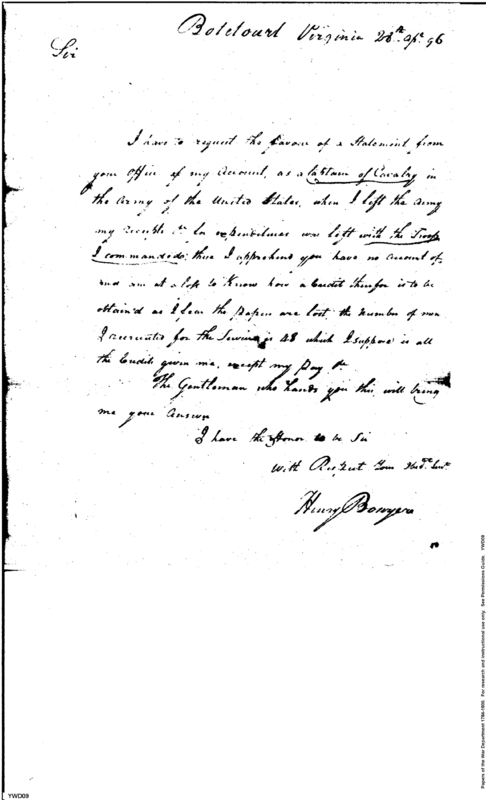 Botetourt Virginia 28th Apr. 96
Sir
I have to request the favour of a Statement from
your Office of my Account, as a Captain of Cavalry in
the Army of the United States, when I left the Army
my receipts &c for expenditures was left with the Troop
I commanded; these I apprehend you have no amount of
and am at a loss to Know how a Credit therefor is to be
obtain'd as I fear the papers are lost, the number of men
I recruited for the Service is 48 which I suppose is all
the Credits given me, except my Pay &c
The Gentleman who hands you this, will bring
me your answer
I have the Honor to be Sir
With Respect Your Obd. Servt
Henry Bowyer
Papers of the War Department 1784-1800. For research and instructional use only. See Permissions Guide. YWD09
YWD09